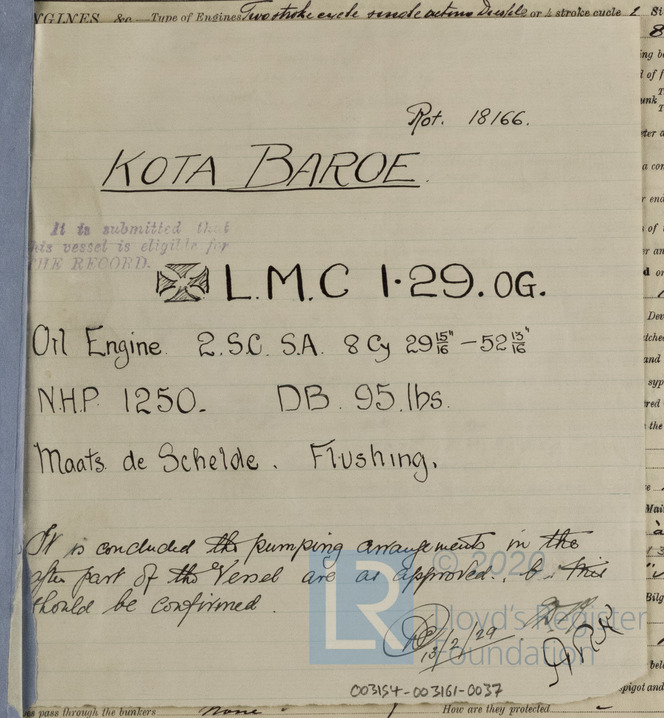 NGINES, &c.—Type of Engines Two stroke cycle single acting Diesels or 4 stroke cycle 2 Si
Rot. 18166.
KOTA BAROE.
It is submitted that
this vessel is eligible for
THE RECORD.
L.M.C 1·29. OG.
Oil Engine. 2.S.C. S.A. 8 Cy 29 15/16" – 52 13/16"
N.H.P. 1250. DB. 95.lbs.
Maats. de Schelde. Flushing.
It is concluded the pumping arrangements in the
after part of the Vessel are as approved. this
should be confirmed.
13/2/29
© 2020
Lloyd's Register
Foundation
LR
003154-003161-0037
es pass through the bunkers none How are they protected